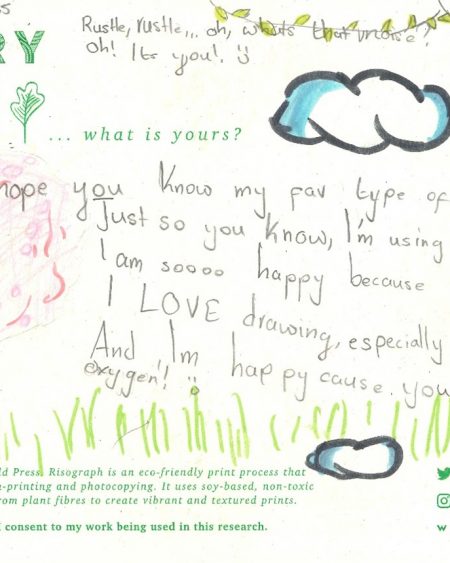 Rustle, rustle... oh, whats that unoise?
Oh! Its you!
RY
... what is yours?
hope you know my fav type of
Just so you know, I'm using
I am soooo happy because
I LOVE drawing, especially
And I'm happy cause you
oxygen!!
ld Press. Risograph is an eco-friendly print process that
n-printing and photocopying. It uses soy-based, non-toxic
rom plant fibres to create vibrant and textured prints.
I consent to my work being used in this research.